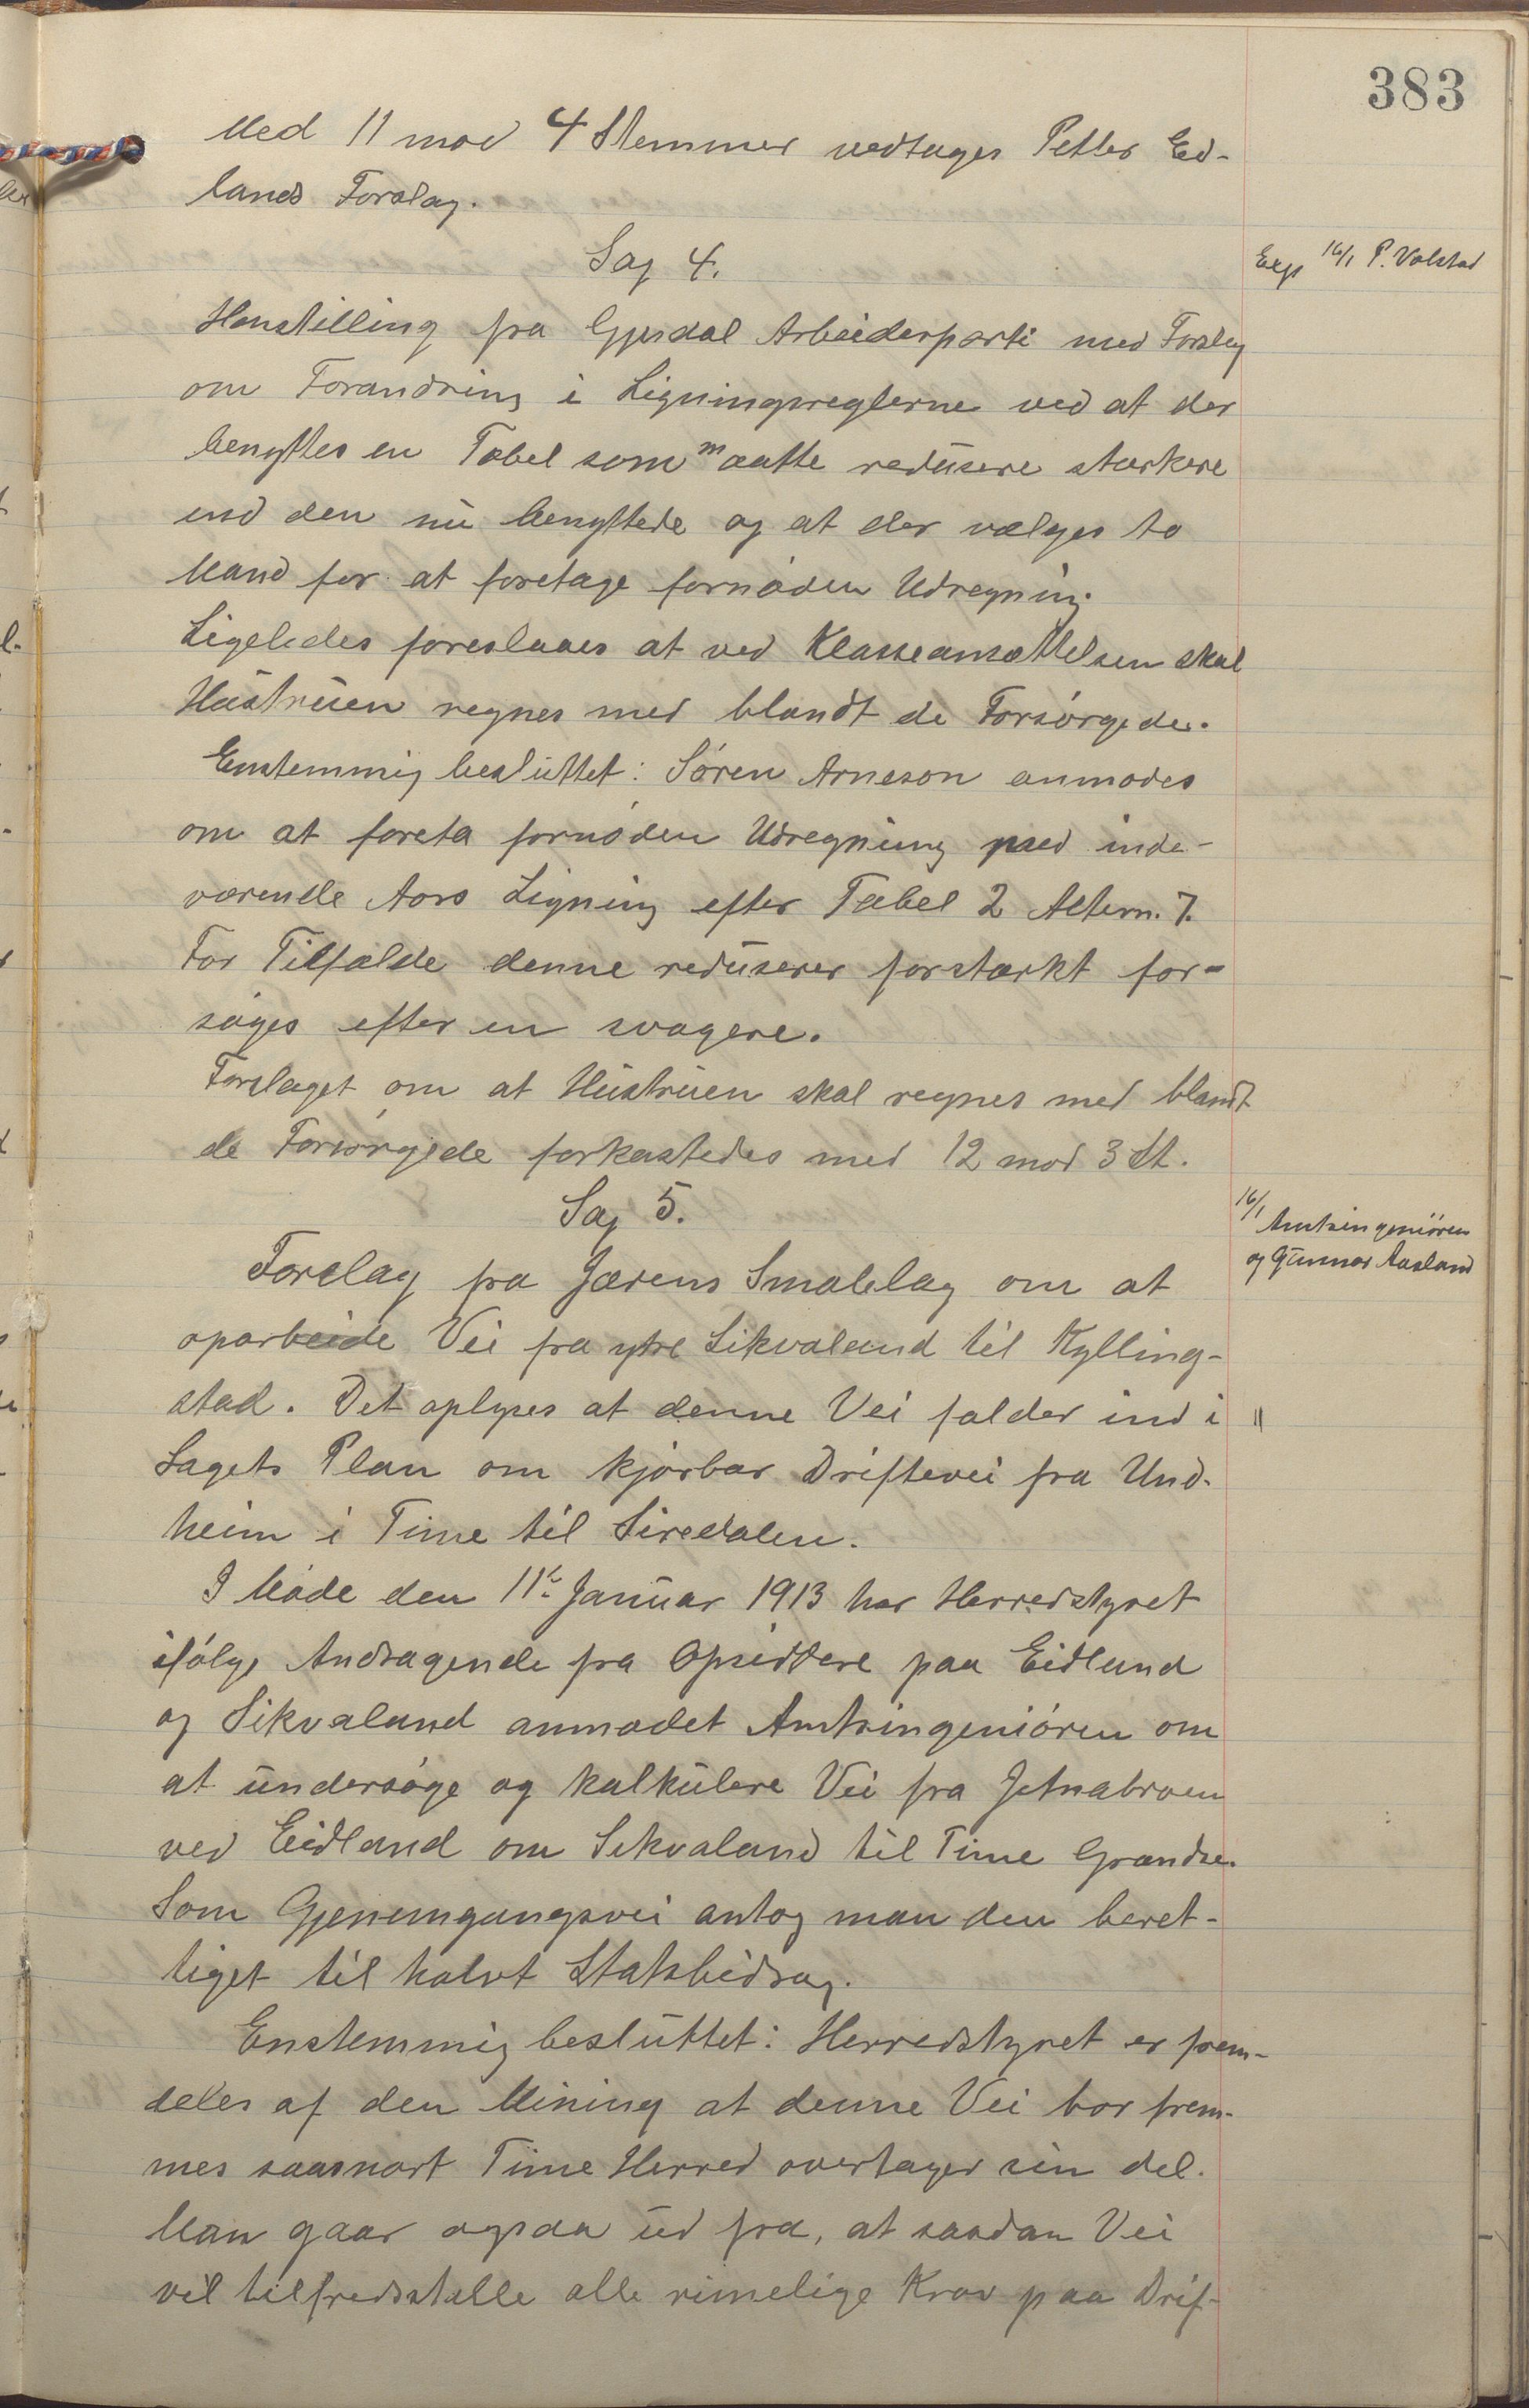 383
Med 11 mod 4 Stemmer vedtages Petter Ed-
lands Forslag.
Sag 4.
Exp 16/1 P. Valstad
Henstilling fra Gjesdal Arbeiderparti med Forslag
om Forandring i Ligningsreglerne ved at der
benyttes en Tabel som maatte redusere stærkere
end den nu benyttede og at der vælges to
Mand for at foretage fornøden Udregning.
Ligeledes foreslaaes at ved Klasseansættelsen skal
Hustruen regnes med blandt de Forsørgede.
Enstemmig besluttet: Søren Arneson anmodes
om at foreta fornøden Udregning med inde-
værende Aars Ligning efter Tabel 2 Altern. 7.
For Tilfælde denne reduserer forstærkt for-
søges efter en svagere.
Forslaget om at Hustruen skal regnes med blandt
de Forsørgede forkastedes med 12 mod 3 St.
Sag 5.
16/1 Amtsingeniøren
og Gunnar Aasland
Forslag fra Jærens Smalelag om at
oparbeide Vei fra ytre Sikvaland til Kylling-
stad. Det oplyses at denne Vei falder ind i
Lagets Plan om kjørbar Driftevei fra Und-
heim i Time til Siredalen.
I Møde den 11te Januar 1913 har Herredstyret
ifølge Andragende fra Opsiddere paa Eidland
og Sikvaland anmodet Amtsingeniøren om
at undersøge og kalkulere Vei fra Jetnabroen
ved Eidland om Sikvaland til Time Grændse.
Som Gjenemgangsvei antog man den beret-
tiget til halvt Statsbidrag.
Enstemmig besluttet: Herredstyret er frem-
deles af den Mining at denne Vei bør frem-
mes saasnart Time Herred overtager sin del.
Man gaar ogsaa ud fra, at saadan Vei
vil tilfredsstille alle rimelige Krav paa Drif-